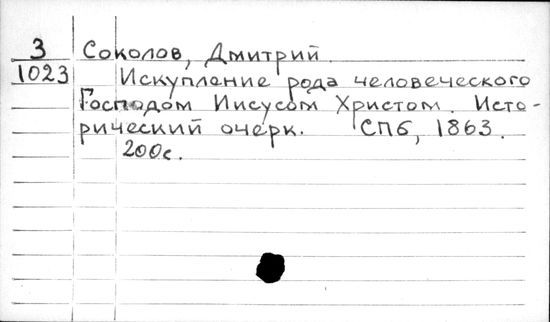 З Соколов, Дмитрий
1023 Искупление рода человеческого
Господом Иисусом Христом. Исто-
рический очерк. СПб, 1863.
200с.